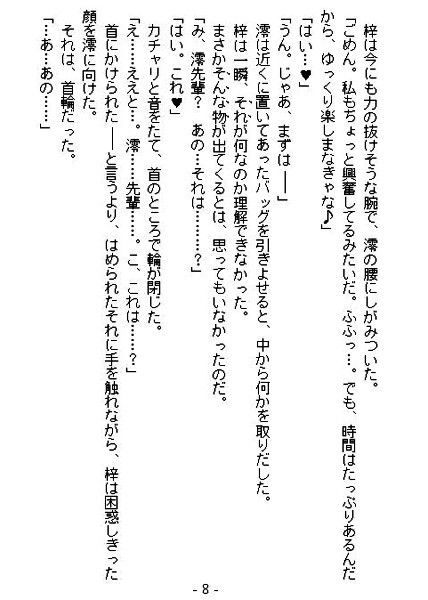 梓は今にも力の抜けそうな腕で、澪の腰にしがみついた。
「ごめん。私もちょっと興奮してるみたいだ。ふふっ…。でも、時間はたっぷりあるんだ
から、ゆっくり楽しまなきゃな♪」
「はい…♥」
「うん。じゃあ、まずは――」
　澪は近くに置いてあったバッグを引きよせると、中から何かを取りだした。
　梓は一瞬、それが何なのか理解できなかった。
　まさかそんな物が出てくるとは、思ってもいなかったのだ。
「み、澪先輩？　あの…それは………？」
「はい。これ♥」
　カチャリと音をたて、首のところで輪が閉じた。
「え……ええと…。澪……先輩……。こ、これは……？」
　首にかけられた――と言うより、はめられたそれに手を触れながら、梓は困惑しきった
顔を澪に向けた。
　それは、首輪だった。
「…あ…あの……」
- 8 -